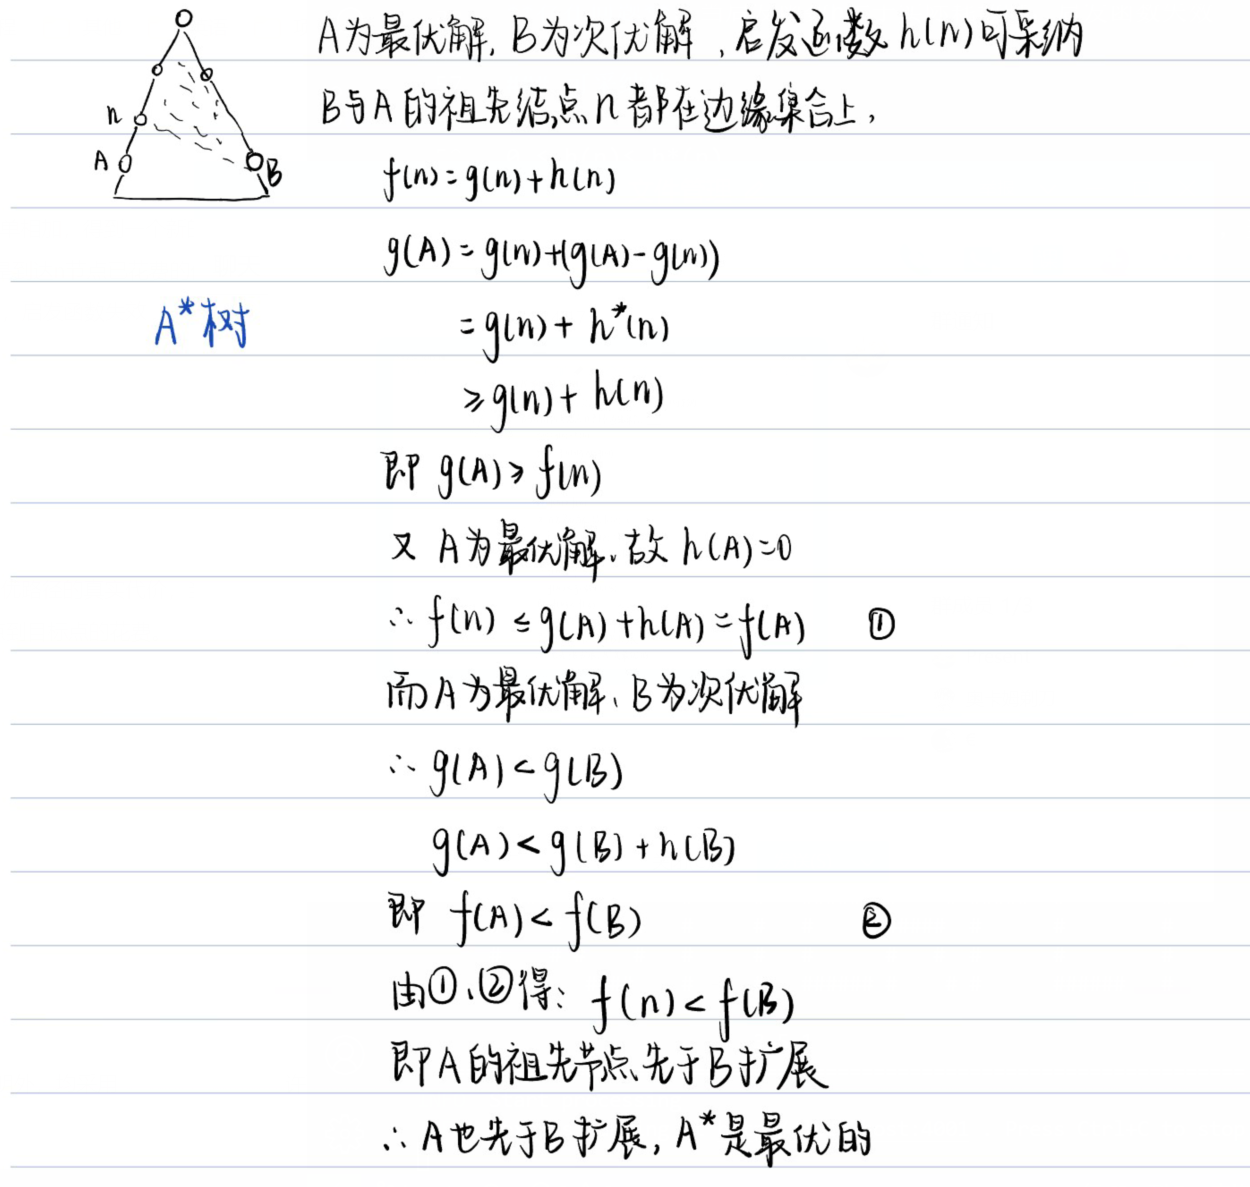 A为最优解,B为次优解,启发函数h(n)可采纳
B与A的祖先结点n都在边缘集合上,
n
A
B
f(n)=g(n)+h(n)
g(A)=g(n)+(g(A)-g(n))
A*树
=g(n)+h*(n)
≥g(n)+h(n)
即 g(A)≥f(n)
又 A为最优解,故 h(A)=0
∴ f(n)≤g(A)+h(A)=f(A) ①
而A为最优解、B为次优解
∴ g(A)<g(B)
g(A)<g(B)+h(B)
即 f(A)<f(B) ②
由①、②得: f(n)<f(B)
即A的祖先节点先于B扩展
∴ A也先于B扩展, A*是最优的